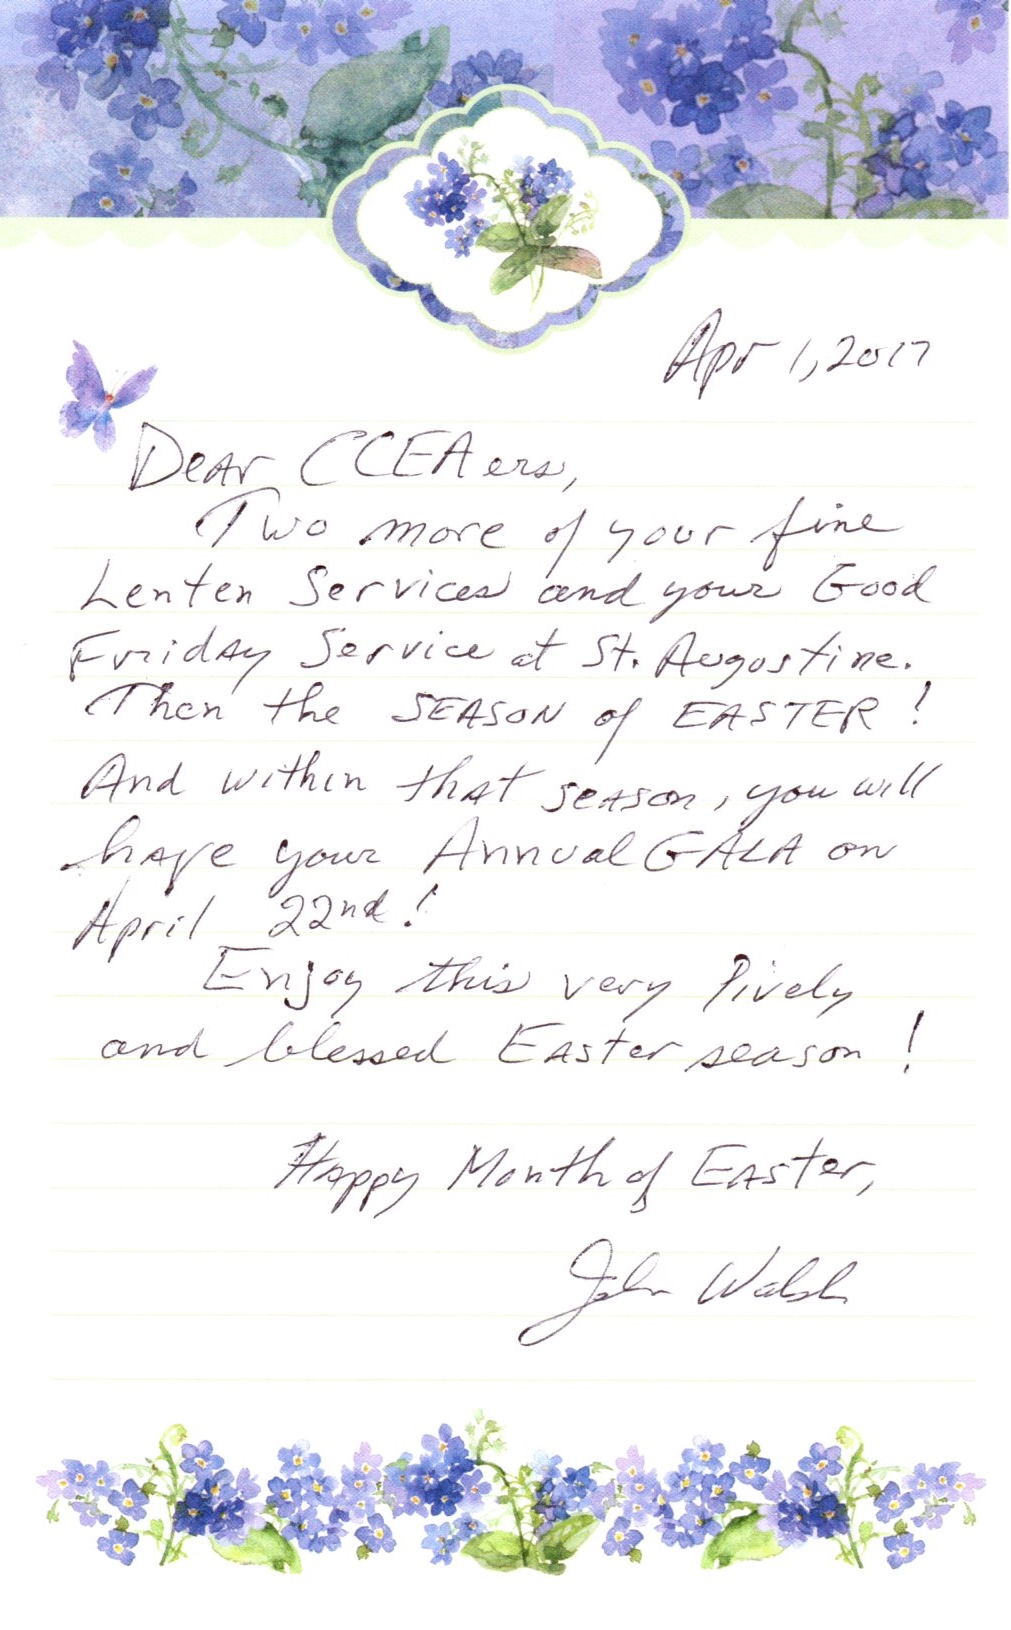 Apr 1, 2017
Dear CCEAers,
Two more of your fine
Lenten Services and your Good
Friday Service at St. Augustine.
Then the SEASON of EASTER!
And within that season, you will
have your Annual GALA on
April 22nd!
Enjoy this very lively
and blessed Easter season!
Happy Month of Easter,
John Walsh